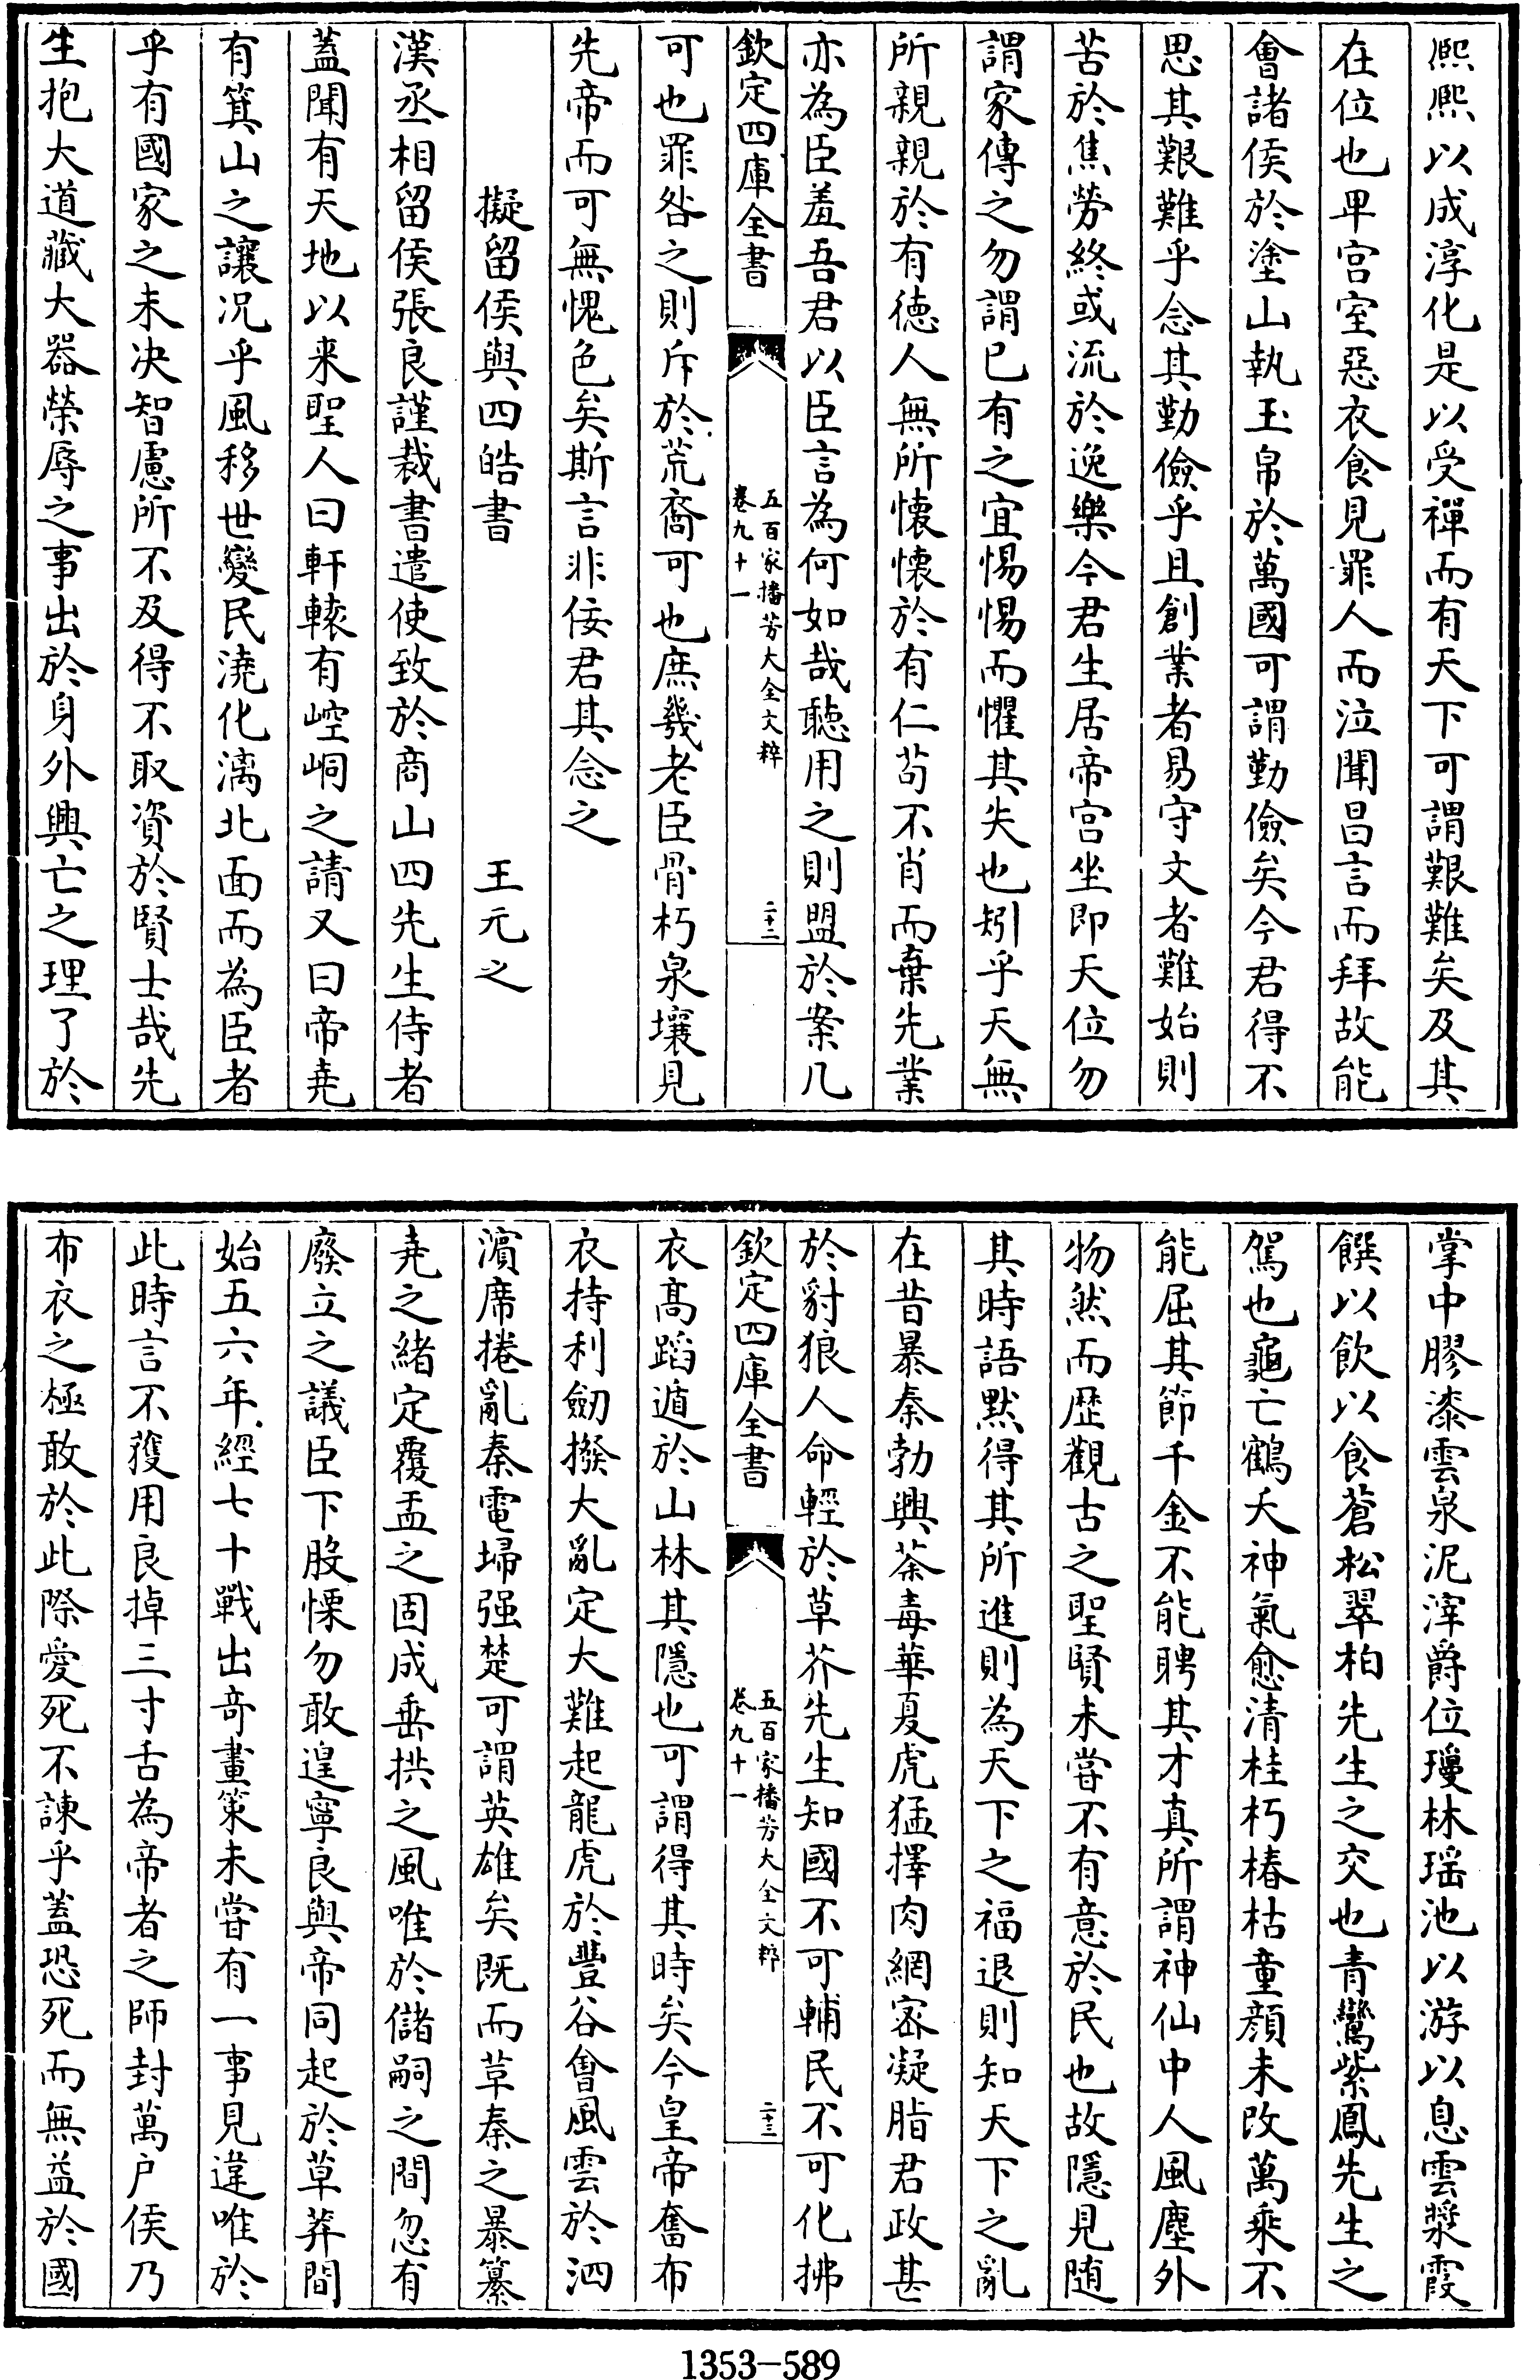 熈熈以成淳化是以受禪而有天下可謂艱難矣及其
在位也卑宫室惡衣食見罪人而泣聞昌言而拜故能
會諸侯於塗山執玉帛於萬國可謂勤儉矣今君得不
思其艱難乎念其勤儉乎且創業者易守文者難始則
苦於焦勞終或流於逸樂今君生居帝宫坐即天位勿
謂家傳之勿謂已有之宜惕惕而懼其失也矧乎天無
所親親於有徳人無所懐懐於有仁茍不肖而棄先業
亦為臣羞吾君以臣言為何如哉聽用之則盟於案几
欽定四庫全書
五百家播芳大全文粹
卷九十一
二十二
可也罪咎之則斥於荒裔可也庶幾老臣骨朽泉壤見
先帝而可無愧色矣斯言非佞君其念之
擬留侯與四皓書
王元之
漢丞相留侯張良謹裁書遣使致於商山四先生侍者
蓋聞有天地以来聖人曰軒轅有崆峒之請又曰帝堯
有箕山之讓况乎風移世變民澆化漓北面而為臣者
乎有國家之未决智慮所不及得不取資於賢士哉先
生抱大道藏大器榮辱之事出於身外興亡之理了於
掌中膠漆雲泉泥滓爵位瓊林瑶池以游以息雲漿霞
饌以飲以食蒼松翠柏先生之交也青鸞紫鳳先生之
駕也龜亡鶴夭神氣愈清桂朽椿枯童顔未改萬乘不
能屈其節千金不能聘其才真所謂神仙中人風塵外
物然而歴觀古之聖賢未嘗不有意於民也故隱見随
其時語默得其所進則為天下之福退則知天下之亂
在昔暴秦勃興荼毒華夏虎猛擇肉網密凝脂君政甚
於豺狼人命輕於草芥先生知國不可輔民不可化拂
欽定四庫全書
五百家播芳大全文粹
卷九十一
二十三
衣髙蹈遁於山林其隱也可謂得其時矣今皇帝奮布
衣持利劒撥大亂定大難起龍虎於豐谷㑹風雲於泗
濵席捲亂秦電埽强楚可謂英雄矣既而草秦之暴纂
堯之緒定覆盂之固成垂拱之風唯於儲嗣之間忽有
廢立之議臣下股慄勿敢遑寧良與帝同起於草莽間
始五六年經七十戰出奇畫策未嘗有一事見違唯於
此時言不獲用良掉三寸舌為帝者之師封萬户侯乃
布衣之極敢於此際愛死不諌乎蓋恐死而無益於國
1353-589